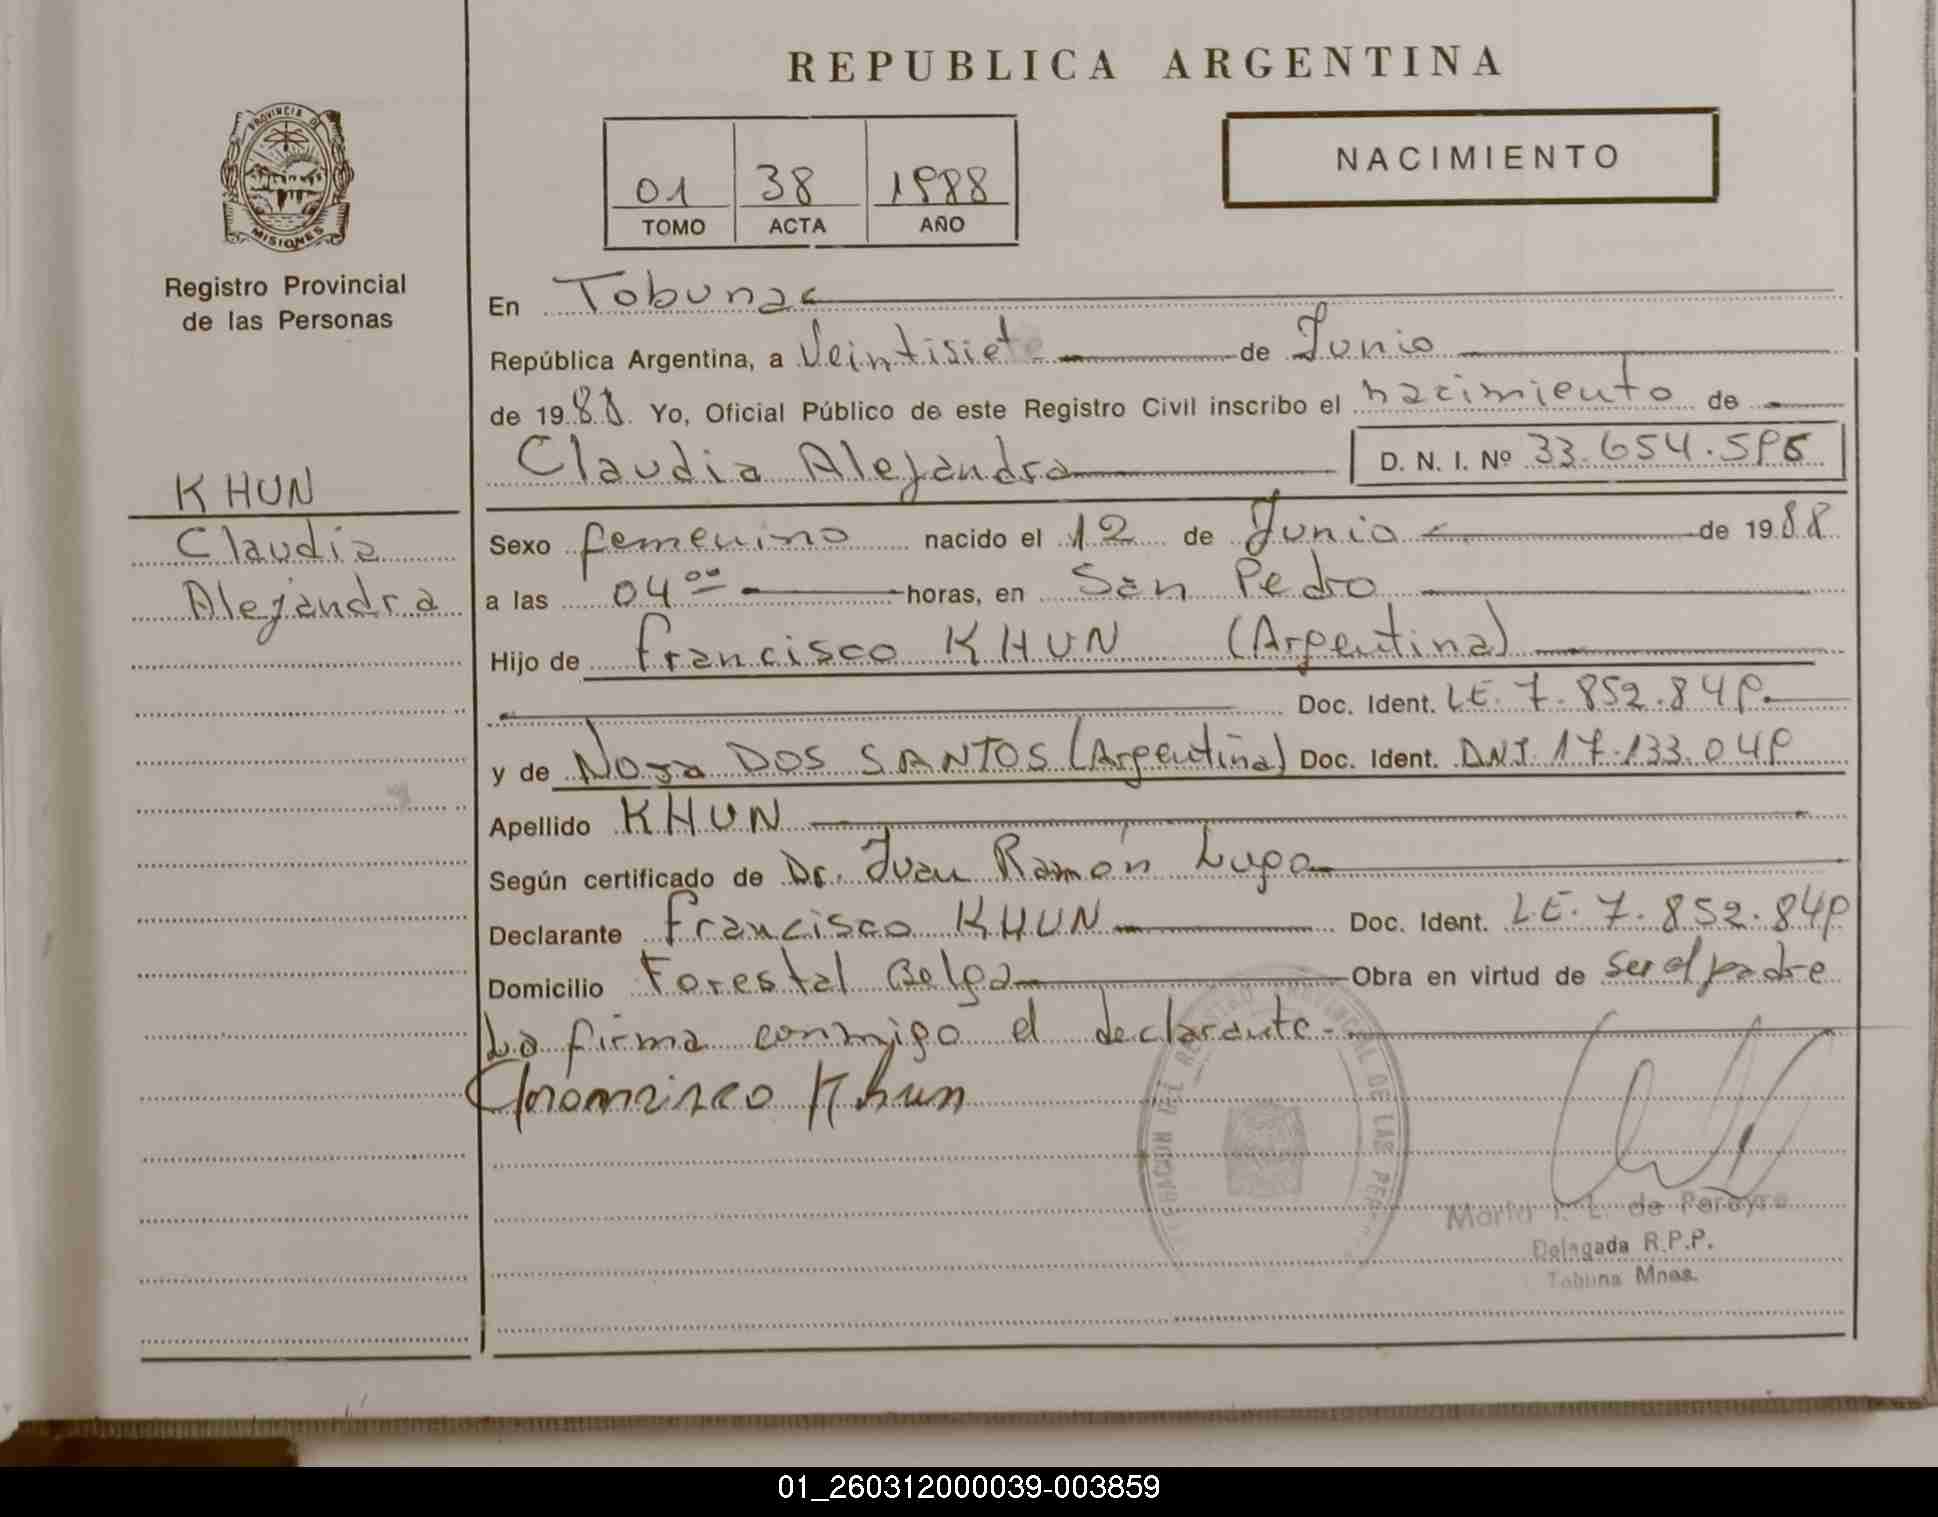 REPUBLICA ARGENTINA
PROVINCIA DE
MISIONES
Registro Provincial
de las Personas
01 38 1988
TOMO ACTA AÑO
NACIMIENTO
En Tobunas
República Argentina, a Veintisiete de Junio
de 1988 Yo, Oficial Público de este Registro Civil inscribo el nacimiento de
Claudia Alejandra D. N. I. Nº 33.654.596
KHUN
Claudia
Alejandra
Sexo femenino nacido el 12 de Junio de 1988
a las 04 00 horas, en San Pedro
Hijo de Francisco KHUN (Argentina)
Doc. Ident. LE. 7.852.849
y de Nora DOS SANTOS (Argentina) Doc. Ident. DNI. 17.133.049
Apellido KHUN
Según certificado de Dr. Juan Ramón Lugo
Declarante Francisco KHUN Doc. Ident. LE. 7.852.849
Domicilio Forestal Belga Obra en virtud de ser el padre
La firma conmigo el declarante-
Francisco Khun
DEL REGISTRO PROVINCIAL DE LAS PERS
de Pereyra
Delegada R.P.P.
Tobuna Mnes.
01_260312000039-003859